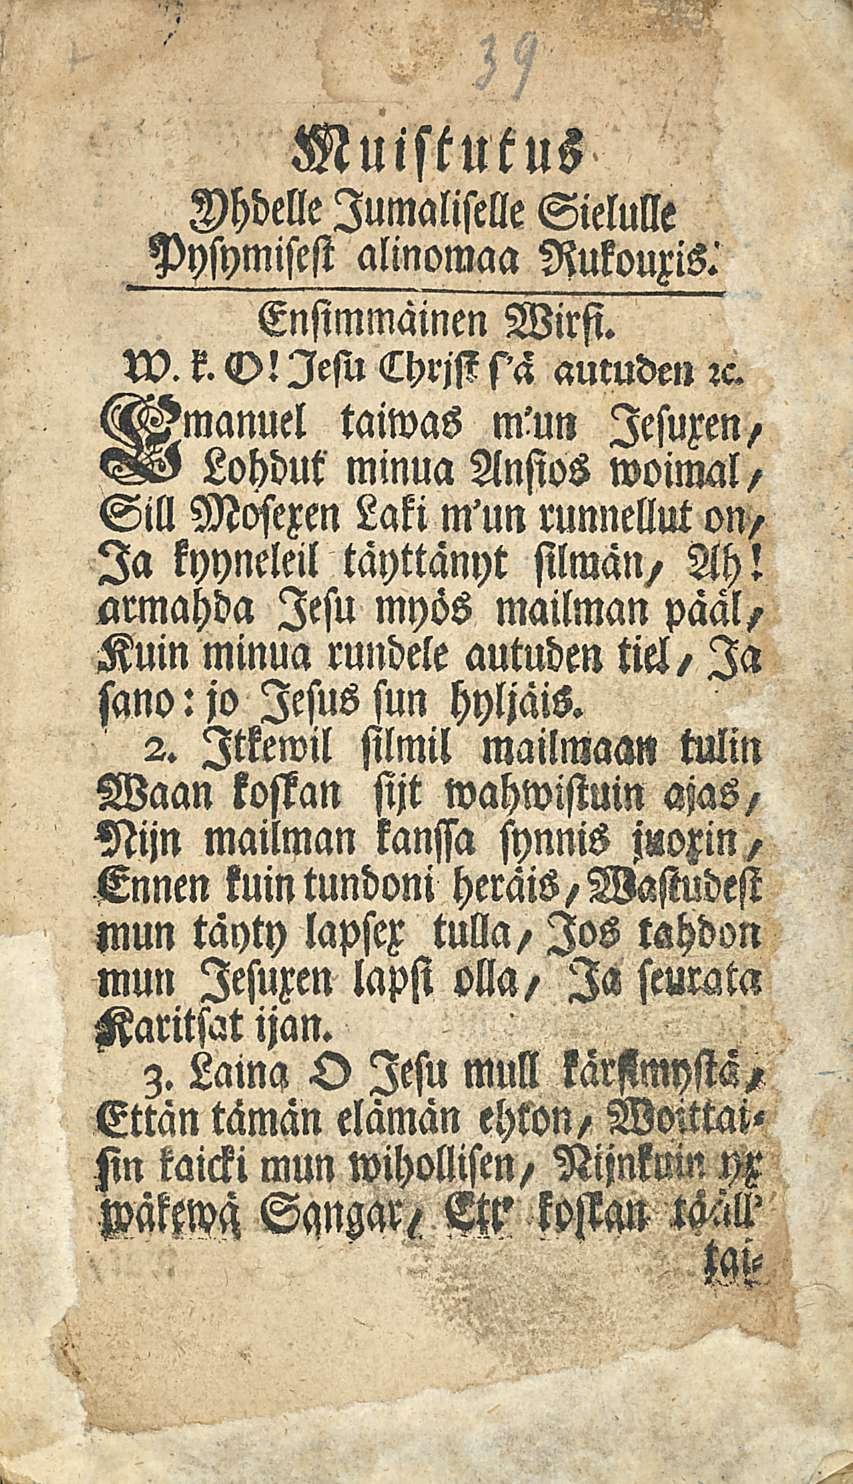 39
Muistutus
Yhdelle Jumaliselle Sielulle
Pysymisest alinomaa Rukouxis.
Ensimmäinen Wirsi.
W. k. O! Jesu Christ s'ä autuden ꝛc.
Emanuel taiwas m'un Jesuxen/
Lohdut minua Ansios woimal/
Sill Mosexen Laki m'un runnellut on/
Ja kyyneleil täyttänyt silmän/ Ah!
armahda Jesu myös mailman pääl/
Kuin minua rundele autuden tiel/ Ja
sano: jo Jesus sun hyljäis.
2. Itkewil silmil mailmaan tulin
Waan koskan sijt wahwistuin ajas/
Nijn mailman kanssa synnis juoxin/
Ennen kuin tundoni heräis/ Wastudest
mun täyty lapsex tulla/ Jos tahdon
mun Jesuxen lapsi olla/ Ja seurata
Karitsat ijan.
3. Laina O Jesu mull kärsimystä/
Ettän tämän elämän ehton/ Woittai-
sin kaicki mun wihollisen/ Nijnkuin yx
wäkewä Sangar/ Ett' koskan tääll'
tai-